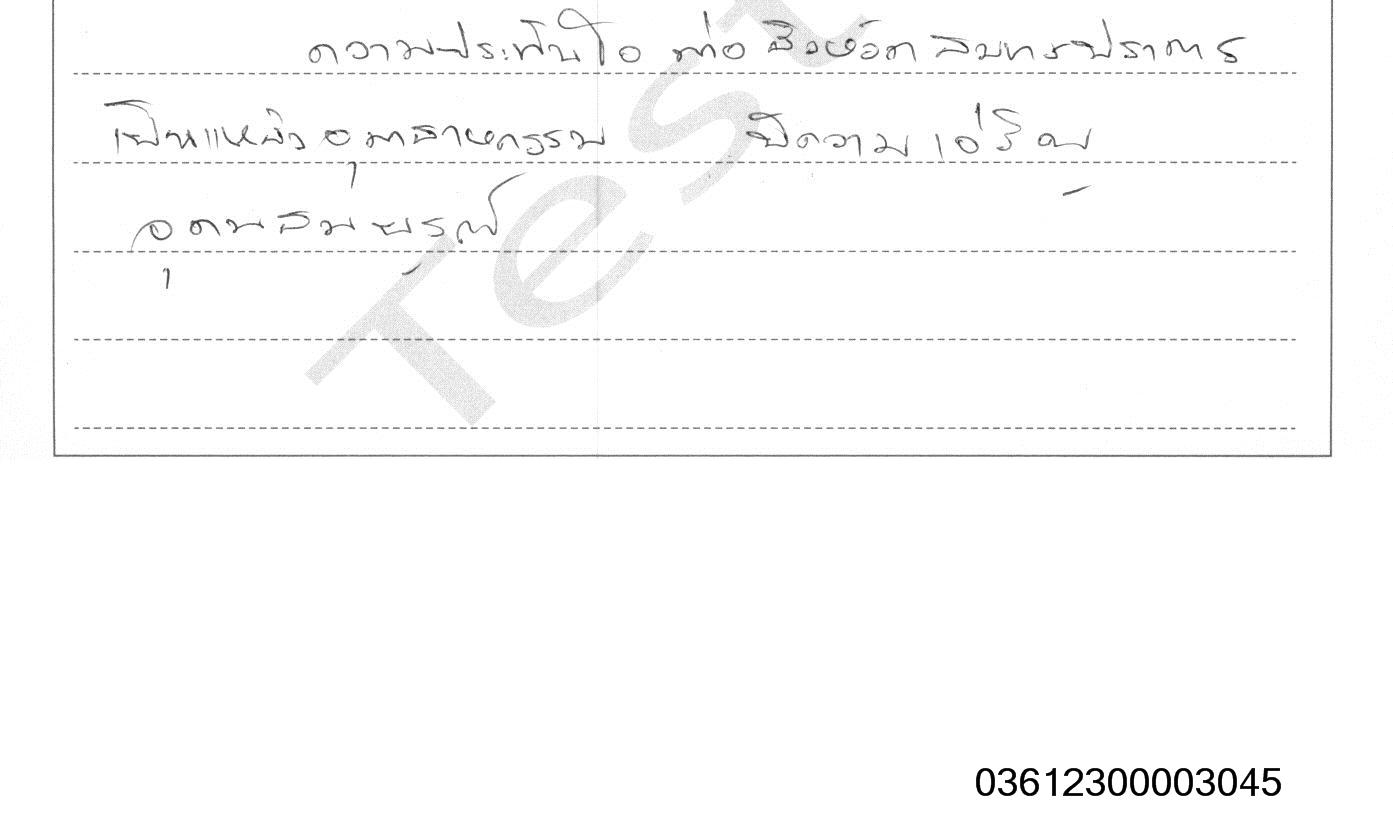 ความประทับใจ ต่อ จังหวัด สมุทรปราการ
เป็นแหล่ง อุตสาหกรรม มีความ เจริญ
อุดมสมบูรณ์
Test
03612300003045